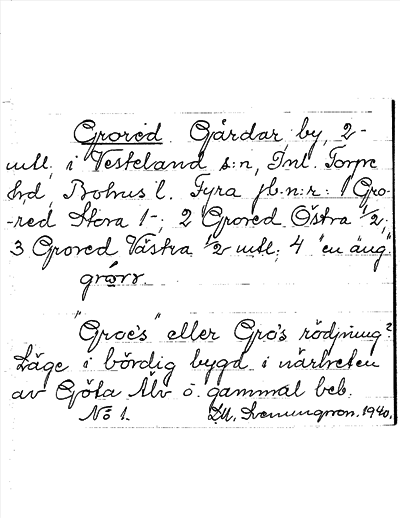 Grored. Gårdar by, 2-
mtl. i Vesteland s:n, Inl. Torpe
hd, Bohus l. Fyra jb.n:r: 1 Gro-
-red Stora 1-; 2 Grored Östra 1/2;
3 Grored Västra 1/2 mtl; 4 "en äng"
"Groe's" eller Gro's rödjning?
Läge i bördig bygd i närheten
av Göta Älv o. gammal beb.
No 1. D.M. Svenungson. 1940.